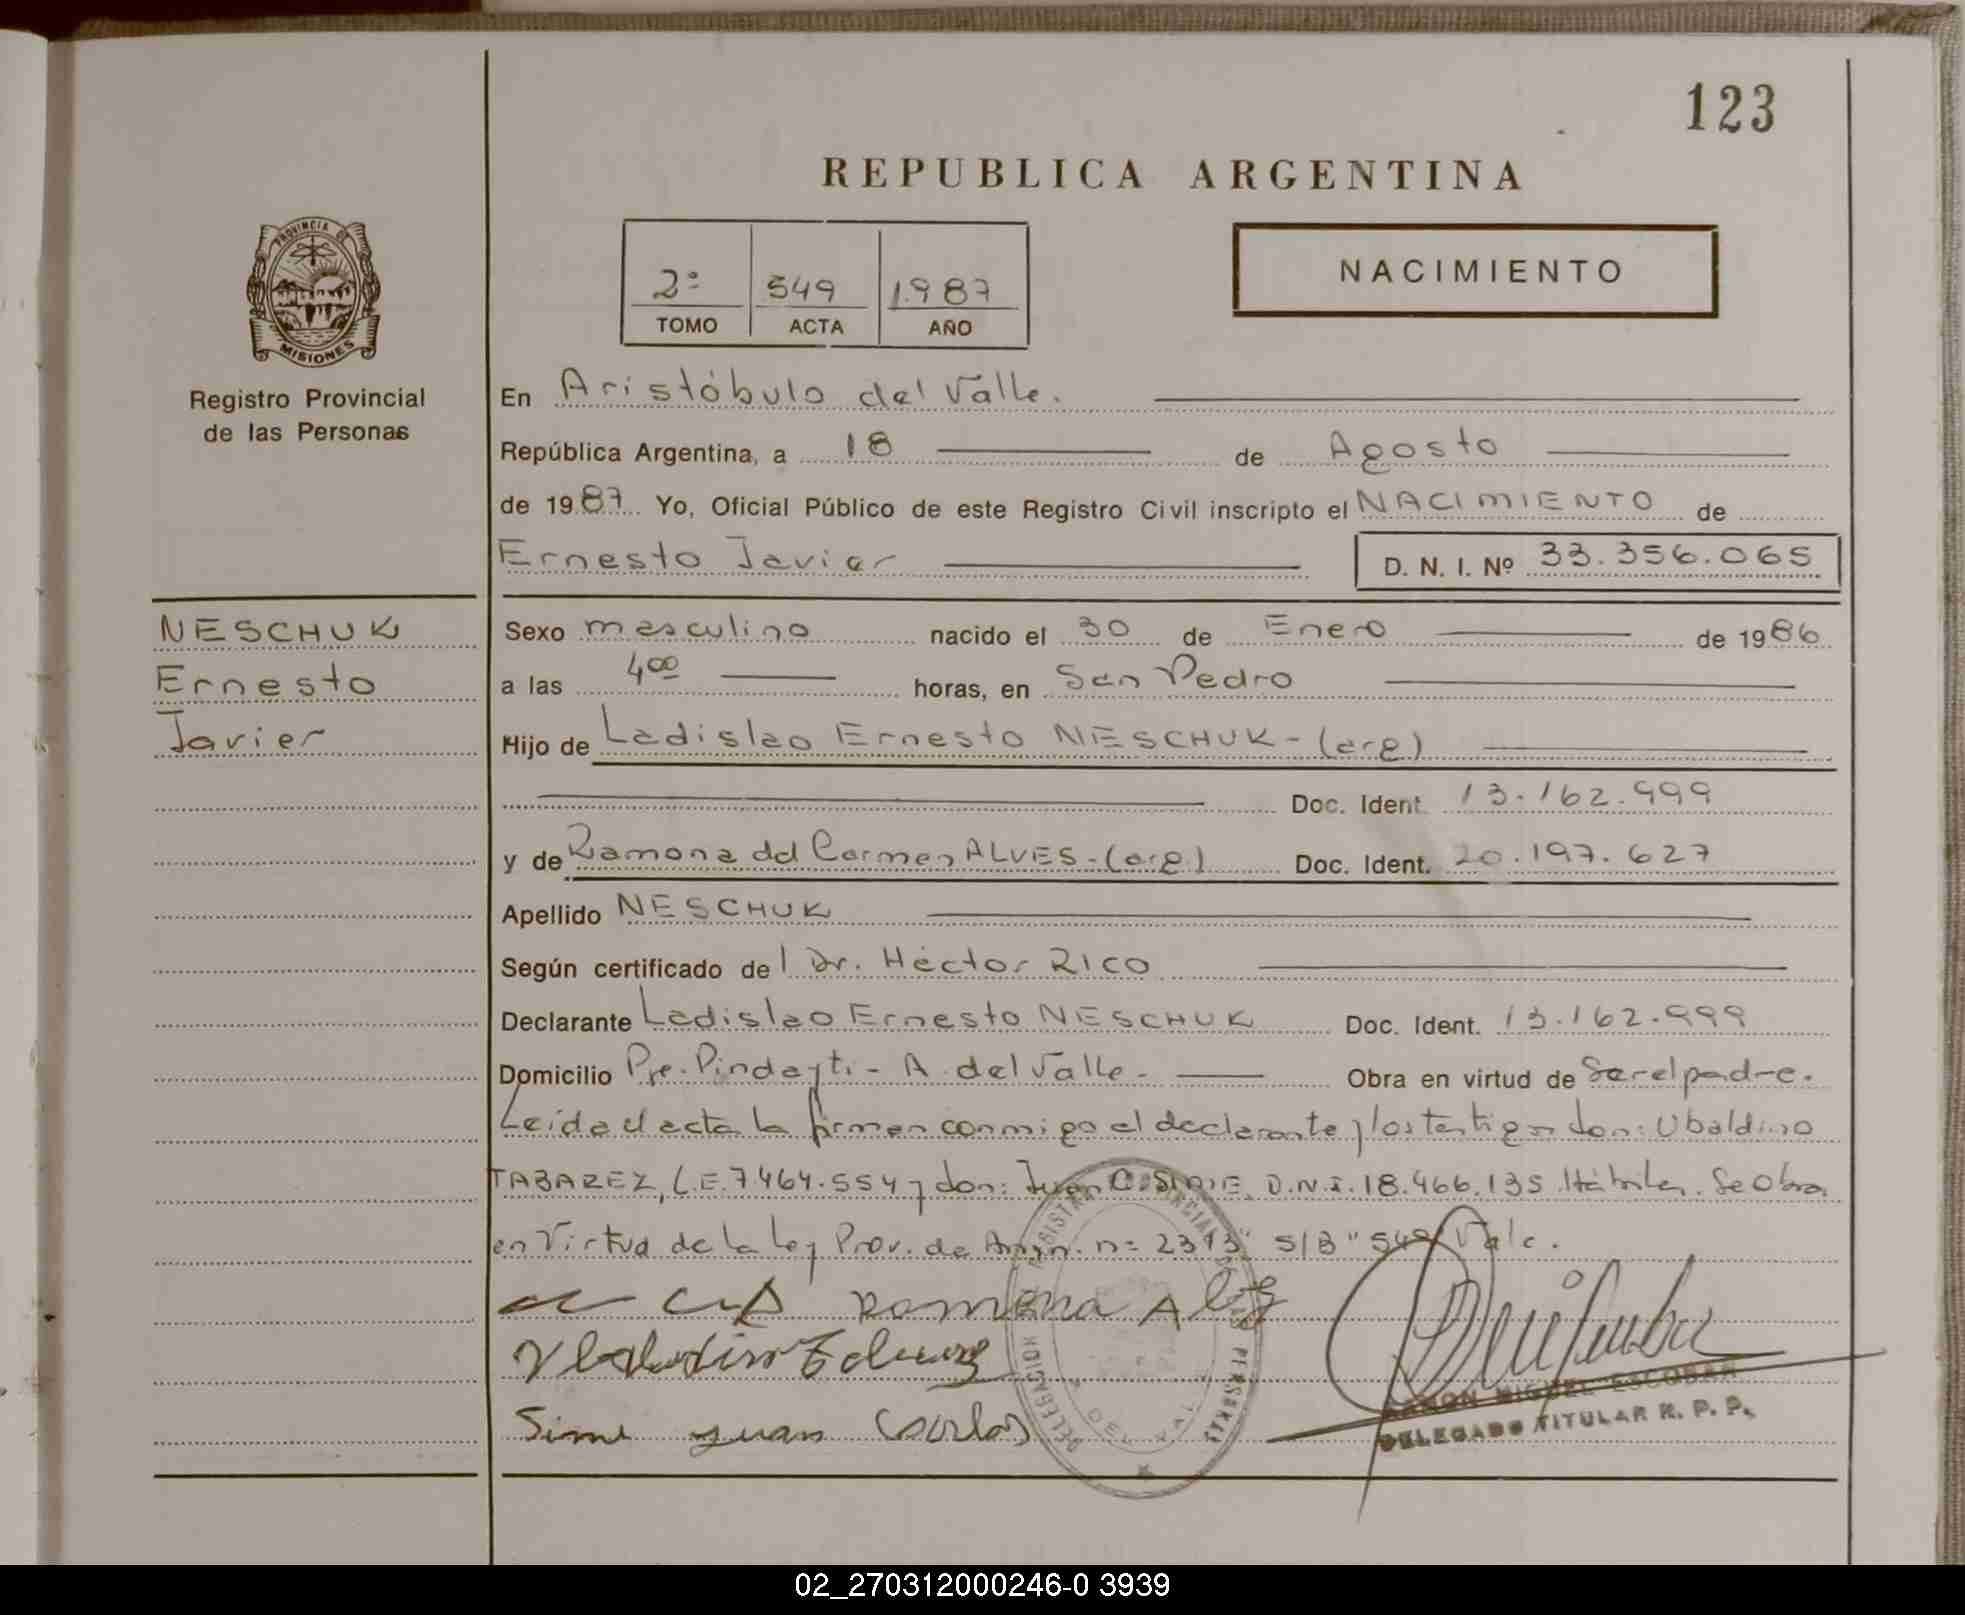 123
REPUBLICA ARGENTINA
2º 549 1.987
TOMO ACTA AÑO
NACIMIENTO
PROVINCIA DE
MISIONES
Registro Provincial
de las Personas
En Aristóbulo del Valle.
República Argentina, a 18 de Agosto
de 1987 Yo, Oficial Público de este Registro Civil inscripto el NACIMIENTO de
Ernesto Javier D. N. I. Nº 33.356.065
NESCHUK
Ernesto
Javier
Sexo masculino nacido el 30 de Enero de 1986
a las 4:00 horas, en San Pedro
Hijo de Ladislao Ernesto NESCHUK - (arg)
Doc. Ident. 13.162.999
y de Ramona del Carmen ALVES - (arg.) Doc. Ident. 20.197.627
Apellido NESCHUK
Según certificado de l Dr. Héctor RICO
Declarante Ladislao Ernesto NESCHUK Doc. Ident. 13.162.999
Domicilio Pje. Pindayti - A. del Valle - Obra en virtud de Ser el padre.
Leída el acta la firman conmigo el declarante y los testigos don: Ubaldino
TABAREZ, L.E. 7.464.554 y don: Juan C. D.N.I. 18.466.135 Hábiles. Se obra
en Virtud de la Ley Prov. de n= 2313" S/B "549 Vale.
Romona
Sime Juan Carlos
RAMON MIGUEL ESCOBAR
DELEGADO TITULAR R. P. P.
02_270312000246-0 3939